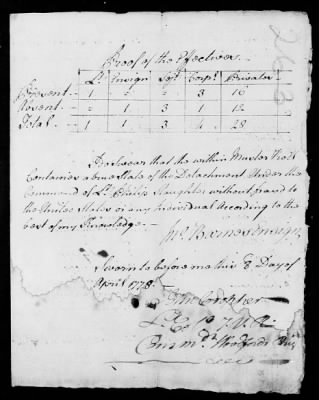 Proof of the Effectives
Lt Ensign Sejt Corpl Privates
Present 1 3 16
Absent 3 1 12
Total 1 1 3 4 28
I do Swear that the within Muster Roll
Contains a true State of the Detachment Under the
Command of Lt Philip Slaughter without fraud to
the United States or any Individual According to the
best of my Knowledge
Jno Barnes Ensign
Sworn to before me this 8 Day of
April 1778
Jno Cropper
Lt Col 7 V. R.